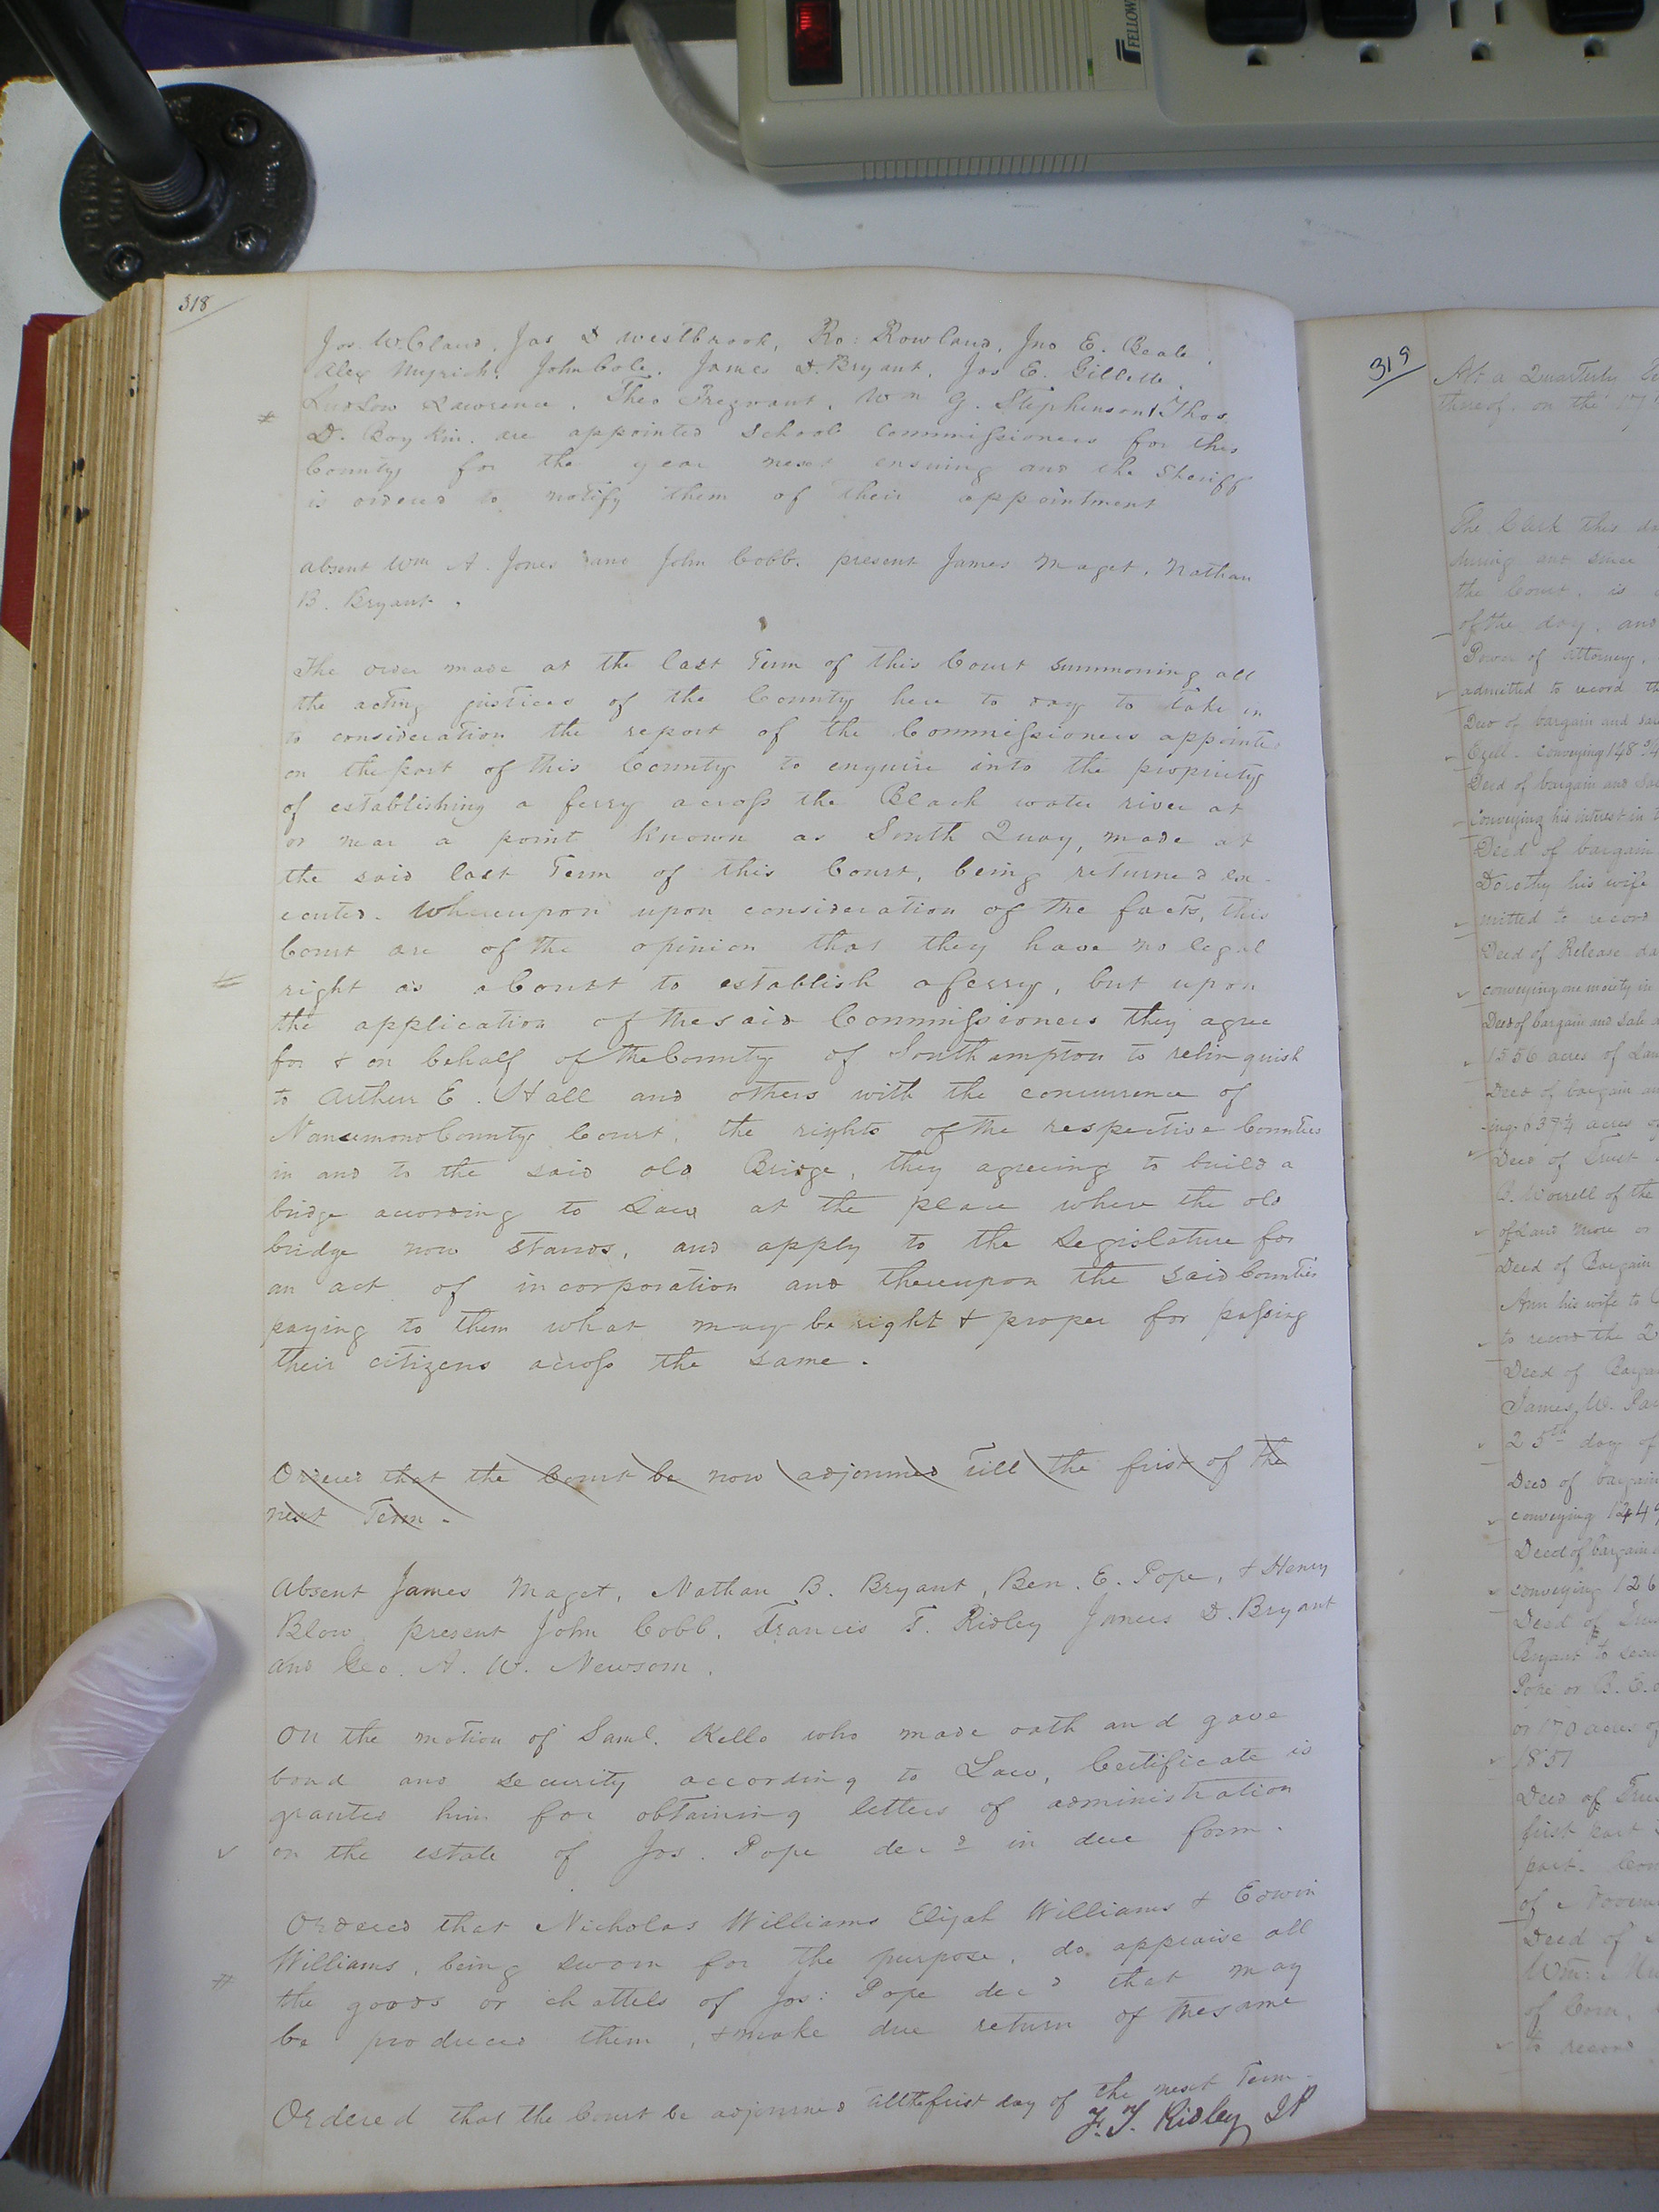 FELLOW
318
Jos. W. Claud, Jas D Westbrook, Ro: Rowland, Jno E. Beale,
Alex Myrick, John Cole, James D. Bryant, Jos E. Gillette,
Ludlow Lawrence, Theo Trezvant, Wm G. Stephenson, Thos
D. Boykin are appointed school Commissioners for this
County for the year next ensuing and the Sheriff
is ordered to notify them of their appointment
absent Wm A. Jones and John Cobb, present James Maget, Nathan
B. Bryant.
The order made at the last Term of this Court summoning all
the acting justices of the County here to day to take in
to consideration the report of the Commissioners appointed
on the part of this County to enquire into the propriety
of establishing a ferry across the Black water river at
or near a point known as South Quay, made at
the said last Term of this Court, being returned ex-
ecuted. Whereupon upon consideration of the facts, this
Court are of the opinion that they have no legal
right as a Court to establish a ferry, but upon
the application of the said Commissioners they agree
for & on behalf of the County of Southampton to relinquish
to Arthur E. Hall and others with the concurrence of
Nansemond County Court, the rights of the respective Counties
in and to the said old Bridge, they agreeing to build a
bridge according to Law at the place where the old
bridge now stands, and apply to the Legislature for
an act of incorporation and thereupon the said Counties
paying to them what may be right & proper for passing
their citizens across the same.
Ordered that the Court be now adjourned till the first of the
next Term.
Absent James Maget, Nathan B. Bryant, Ben. E. Pope, & Henry
Blow, present John Cobb, Francis T. Ridley James D. Bryant
and Geo. A. W. Newsom.
On the motion of Saml. Kello who made oath and gave
bond and security according to Law, Certificate is
granted him for obtaining letters of administration
on the estate of Jos. Pope decd in due form.
Ordered that Nicholas Williams Elijah Williams & Edwin
Williams, being sworn for the purpose, do appraise all
the goods or chattels of Jos: Pope decd that may
be produced them, & make due return of the same
Ordered that the Court be adjourned till the first day of the next Term.
F. T. Ridley JP
319
At a Quarterly
thereof, on the
The Clerk this
during and since
the Court, is
of the day, and
Power of attorney,
admitted to record
Deed of bargain and
Ezell - conveying 148 3/4
Deed of bargain and
conveying his interest in
Deed of bargain
Dorothy his wife
mitted to record
Deed of Release
conveying one moiety in
Deed of bargain and Sale
1556 acres of
Deed of bargain
acres
Deed of Trust
Worrell of the
of Land more or
Deed of Bargain
Ann his wife to
to record the 2
Deed of
James W.
25th day of
Deed of bargain
conveying 124
Deed of bargain
conveying 126
Deed of
Bryant to
Pope or B. E.
or 170 acres of
1851
Deed of
first part
part.
of
Deed of
Wm:
of Corn,
to record